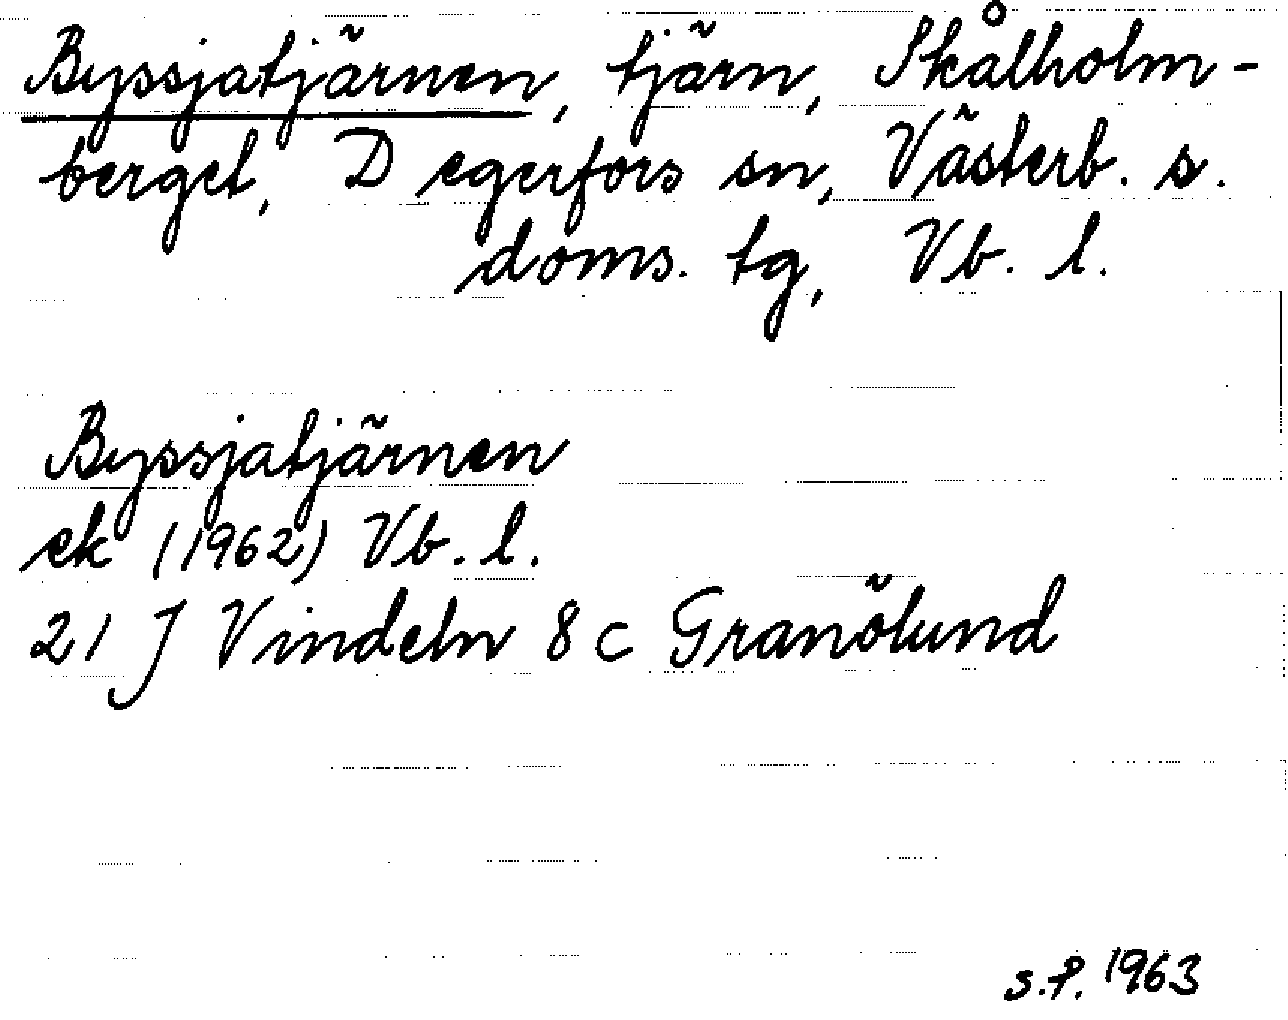 Byssjatjärnen, tjärn, Skålholm-
berget, Degerfors sn, Västerb. s.
doms. tg, Vb. l.
Byssjatjärnen
ek (1962) Vb. l.
21 J Vindeln 8 c Granölund
s.f. 1963